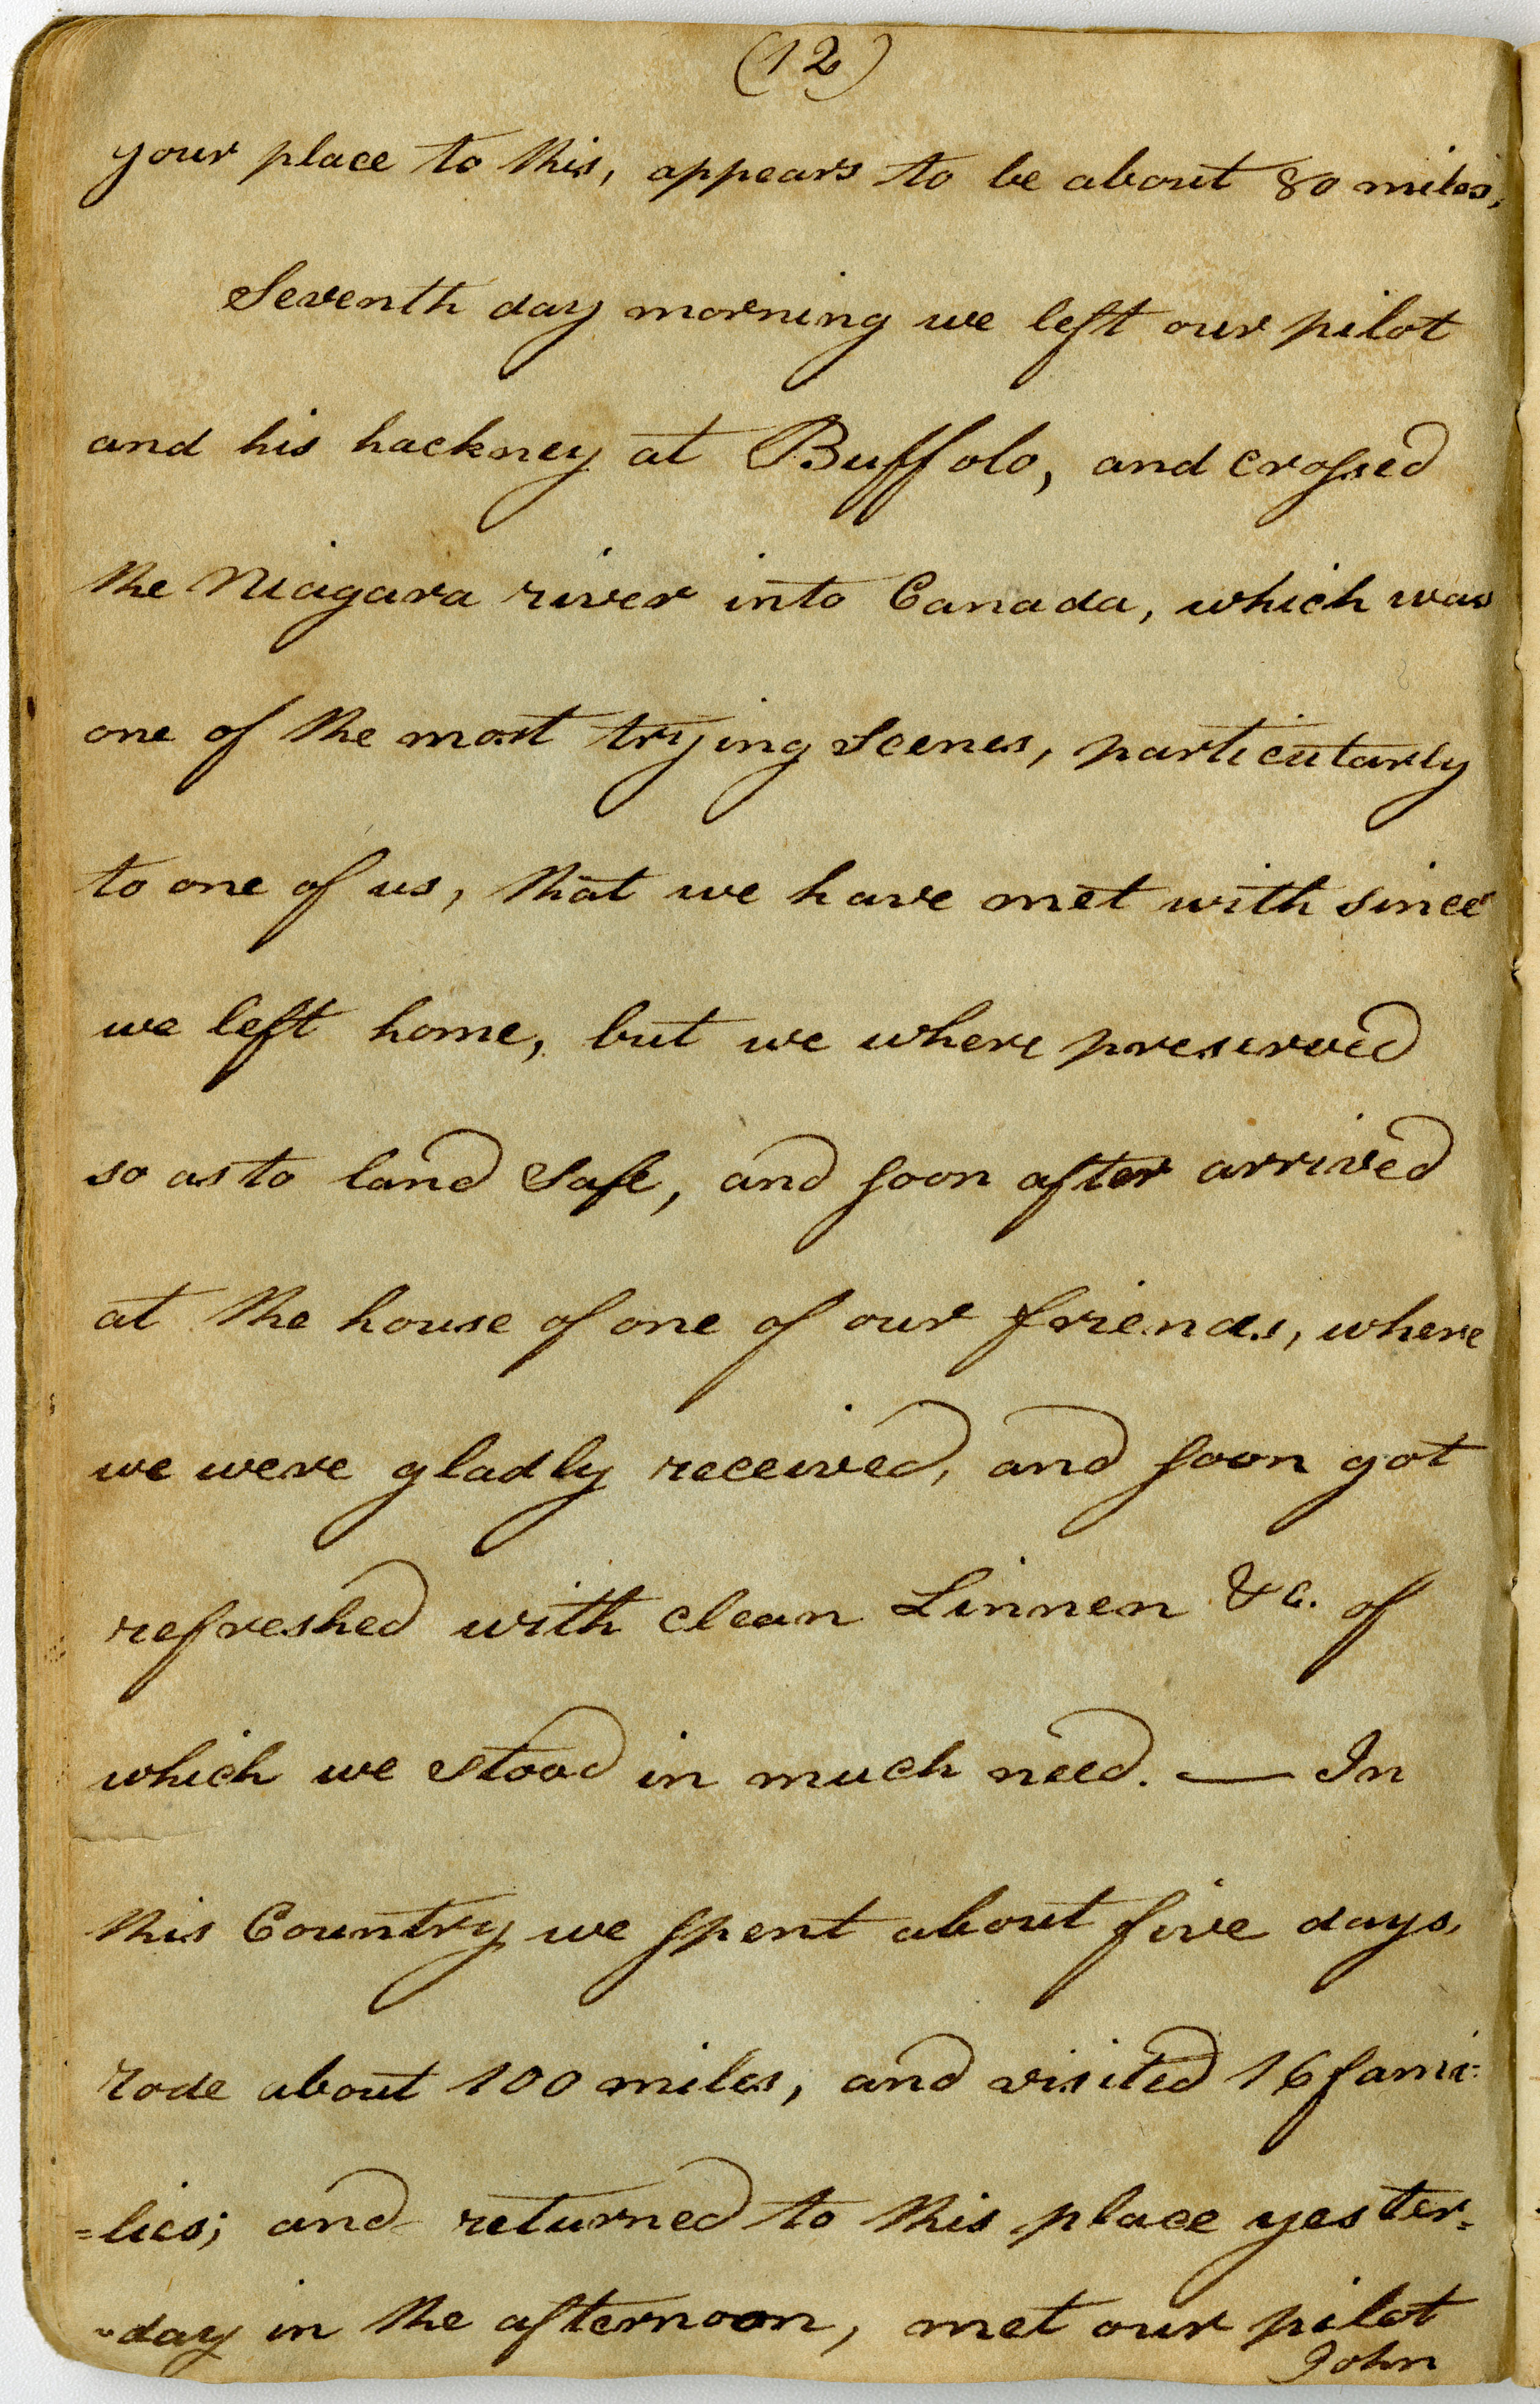 (12)
your place to this, appears to be about 80 miles,
Seventh day morning we left our pilot
and his hackney at Buffolo, and crossed
the Niagara river into Canada, which was
one of the most trying Scenes, particularly
to one of us, that we have met with since
we left home, but we where preserved
so as to land Safe, and soon after arrived
at the house of one of our friends, where
we were gladly received, and soon got
refreshed with clean Linnen &c. of
which we stood in much need. — In
this Country we spent about five days,
rode about 100 miles, and visited 16 fami=
=lies; and returned to this place yester=
=day in the afternoon, met our pilot
John